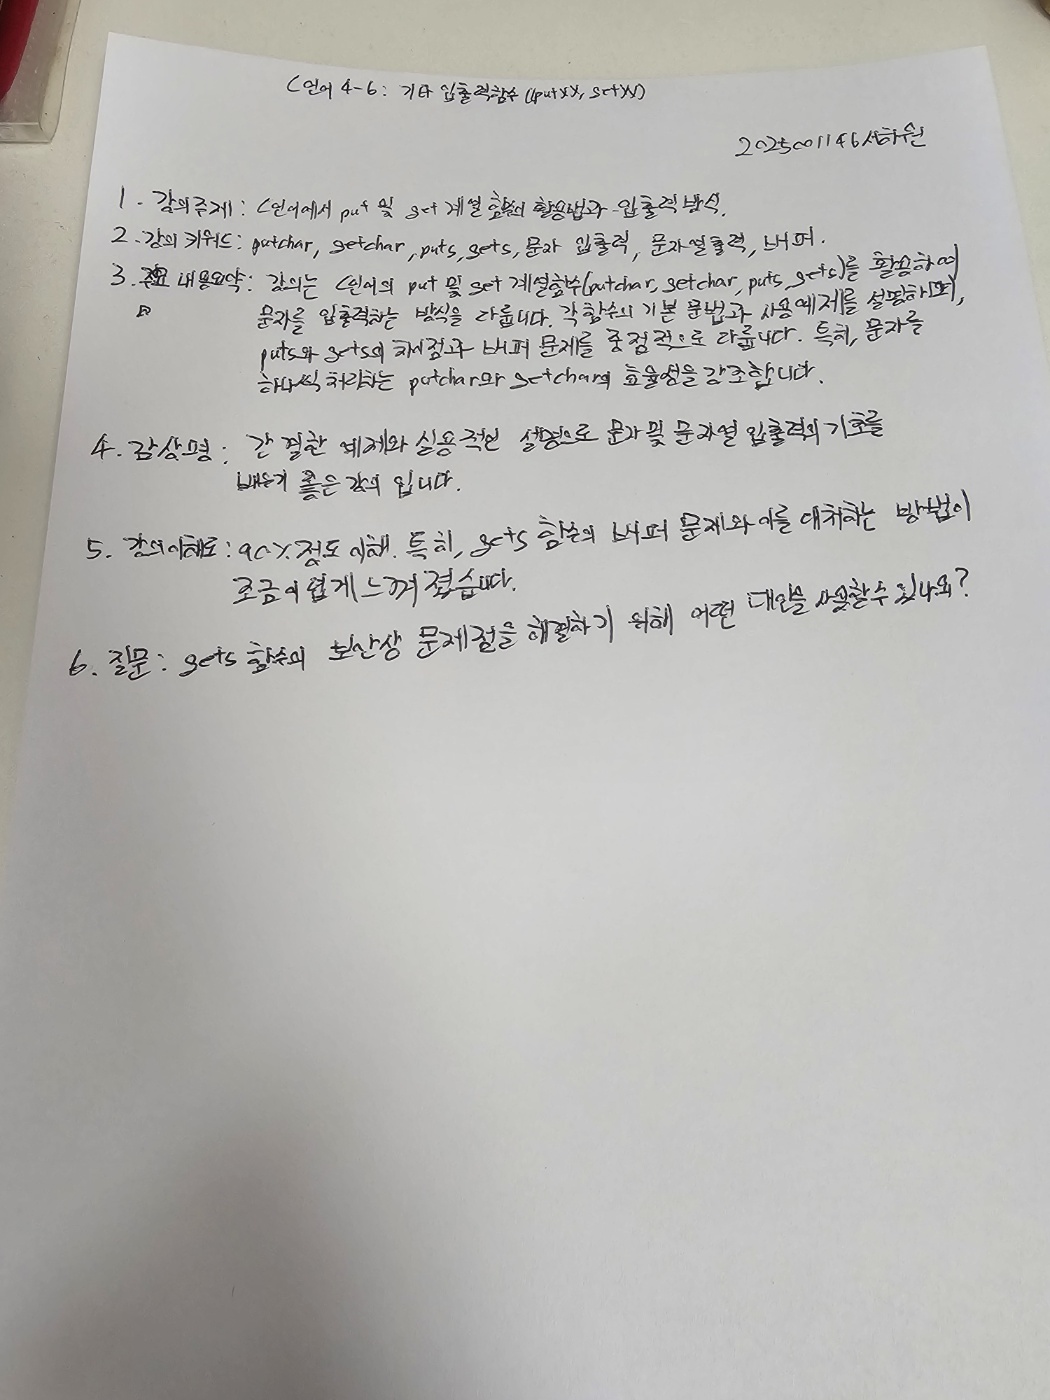 C언어 4-6: 기타 입출력함수 (putxx, getxx)
2025001146 서하원
1. 강의주제: C언어에서 put 및 get 계열 함수의 활용법과 입출력 방식.
2. 강의 키워드: putchar, getchar, puts, gets, 문자 입출력, 문자열출력, 버퍼.
3. 주요 내용요약: 강의는 C언어의 put 및 get 계열함수(putchar, getchar, puts, gets)를 활용하여
문자를 입출력하는 방식을 다룹니다. 각 함수의 기본 문법과 사용예제를 설명하며,
puts와 gets의 차이점과 버퍼 문제를 중점적으로 다룹니다. 특히, 문자를
하나씩 처리하는 putchar와 getchar의 효율성을 강조합니다.
4. 감상평: 간결한 예제와 실용적인 설명으로 문자 및 문자열 입출력의 기초를
배우기 좋은 강의 입니다.
5. 강의이해도: 90% 정도 이해. 특히, gets 함수의 버퍼 문제와 이를 대처하는 방법이
조금 어렵게 느껴졌습니다.
6. 질문: gets 함수의 보안상 문제점을 해결하기 위해 어떤 대안을 사용할수 있나요?